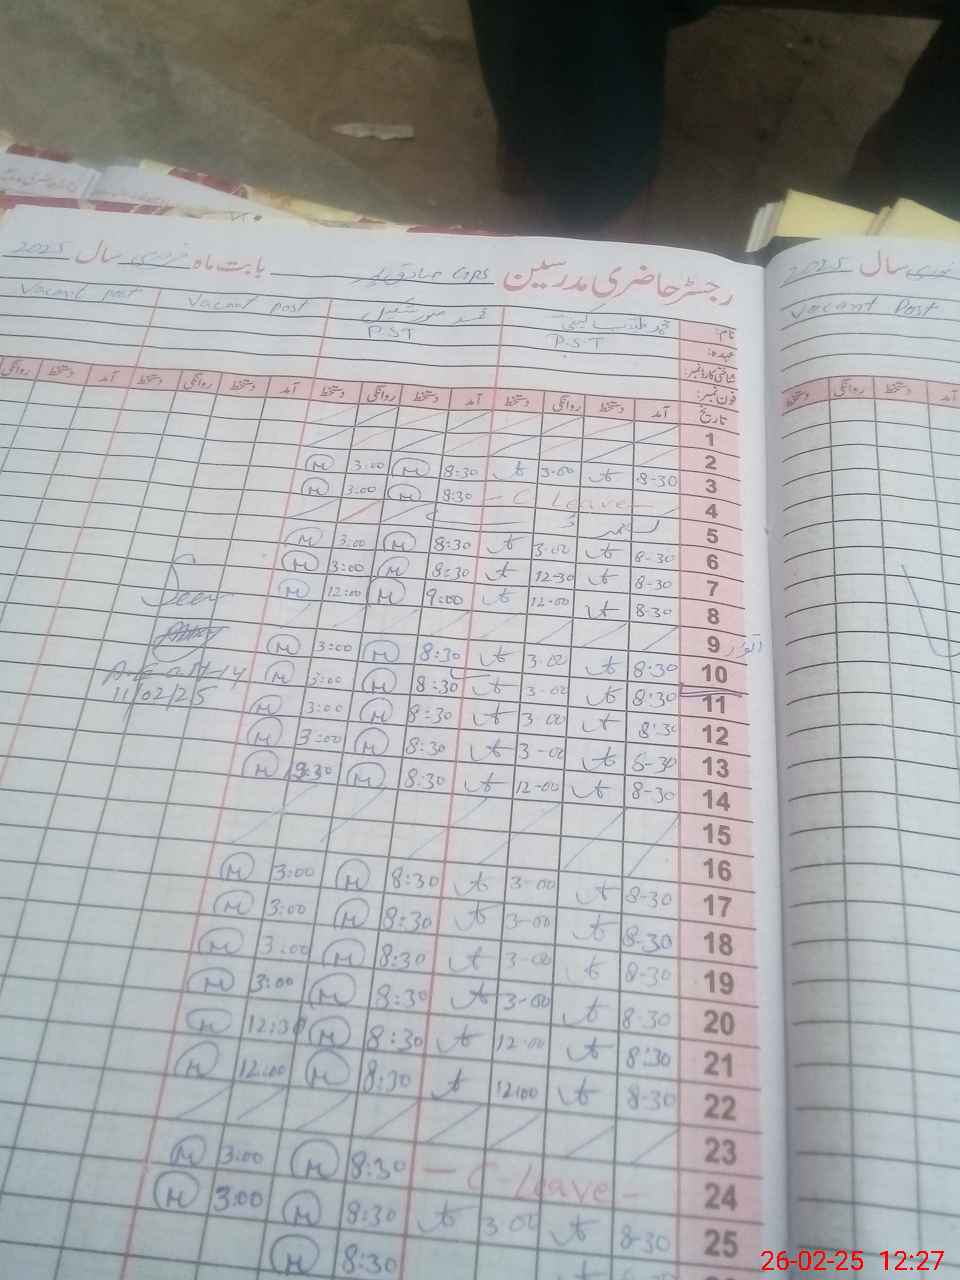 رجسٹر حاضری مدرسین GPS صادق پور بابت ماہ فروری سال 2025
سال 2025
نام: محمد طیب Vacant post Vacant post Vacant Post
عہدہ: P.S.T P.S.T
شناختی کارڈ نمبر:
فون نمبر:
تاریخ آمد دستخط روانگی دستخط آمد دستخط روانگی دستخط آمد دستخط روانگی دستخط آمد دستخط روانگی
1
2
3 8-30 3-00 8:30 M 3:00 M
4 - C Leave - 8:30 M 3:00 M
5
6 8-30 3-00 8:30 M 3:00 M
7 8-30 12-30 8:30 M 3:00 M
8 8-30 12-00 9:00 M 12:00 M
9 اتوار
10 8:30 3-00 8:30 M 3:00 M
11 8:30 3-00 8:30 M 3:00 M
12 8:30 3-00 8:30 M 3:00 M
13 8-30 3-00 8:30 M 3:00 M
14 8-30 12-00 8:30 M M
A.E.O
11/02/25
15
16
17 8-30 3-00 8:30 M 3:00 M
18 8-30 3-00 8:30 M 3:00 M
19 8-30 3-00 8:30 M 3:00 M
20 8-30 3-00 8:30 M 3:00 M
21 8:30 12-00 8:30 M 12:30 M
22 8-30 12:00 8:30 M 12:00 M
23
24 - C-Leave - 8:30 M 3:00 M
25 8-30 3-00 8:30 M 3:00 M
8:30 M
26-02-25 12:27